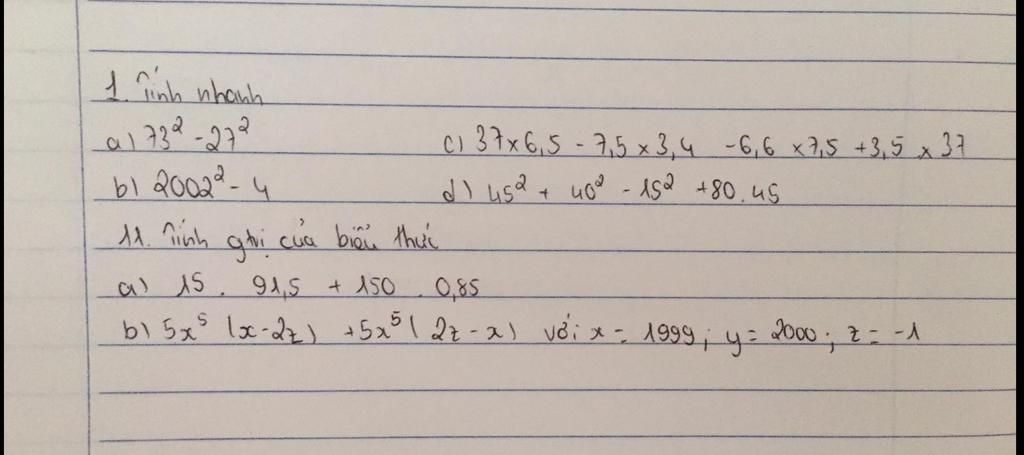 1. Tính nhanh
a) 73² - 27² c) 37 × 6,5 - 7,5 × 3,4 - 6,6 × 7,5 + 3,5 × 37
b) 2002² - 4 d) 45² + 40² - 15² + 80 . 45
11. Tính gtrị của biểu thức
a) 15 . 91,5 + 150 . 0,85
b) 5x⁵ (x - 2z) + 5x⁵ (2z - x) với x = 1999 ; y = 2000 ; z = -1